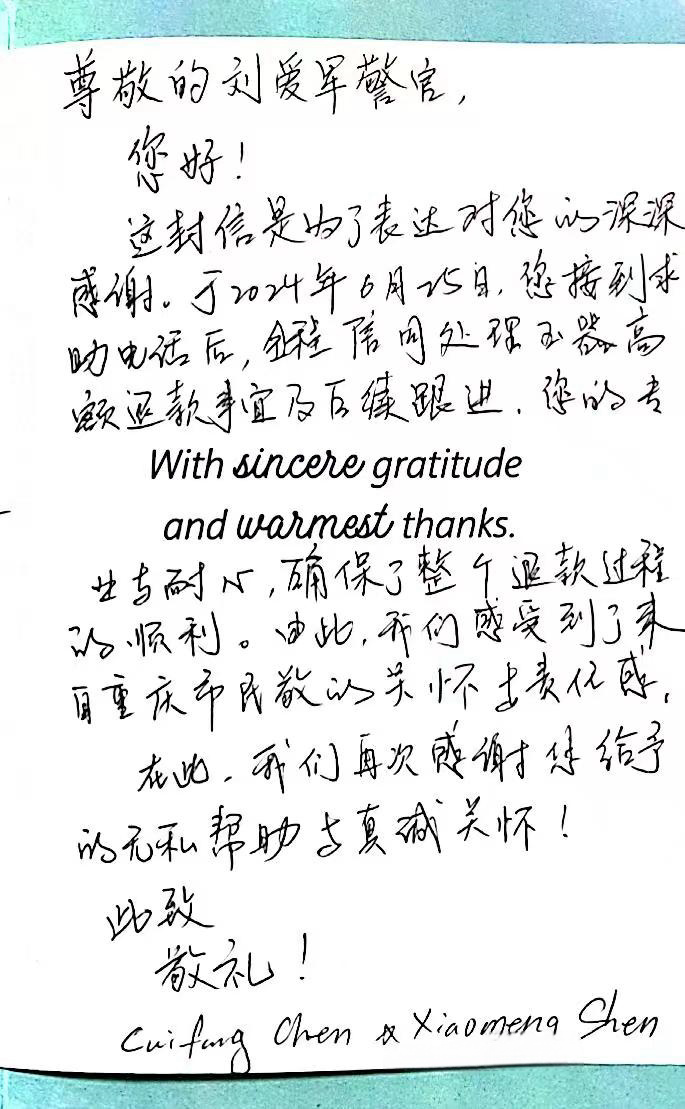 尊敬的刘爱军警官，
您好！
这封信是为了表达对您的深深
感谢。于2024年6月25日，您接到求
助电话后，全程陪同处理玉器高
额退款事宜及后续跟进。您的专
With sincere gratitude
and warmest thanks.
业与耐心，确保了整个退款过程
的顺利。由此，我们感受到了来
自重庆市民警的关怀与责任感。
在此，我们再次感谢您给予
的无私帮助与真诚关怀！
此致
敬礼！
Cuifang Chen & Xiaomeng Shen